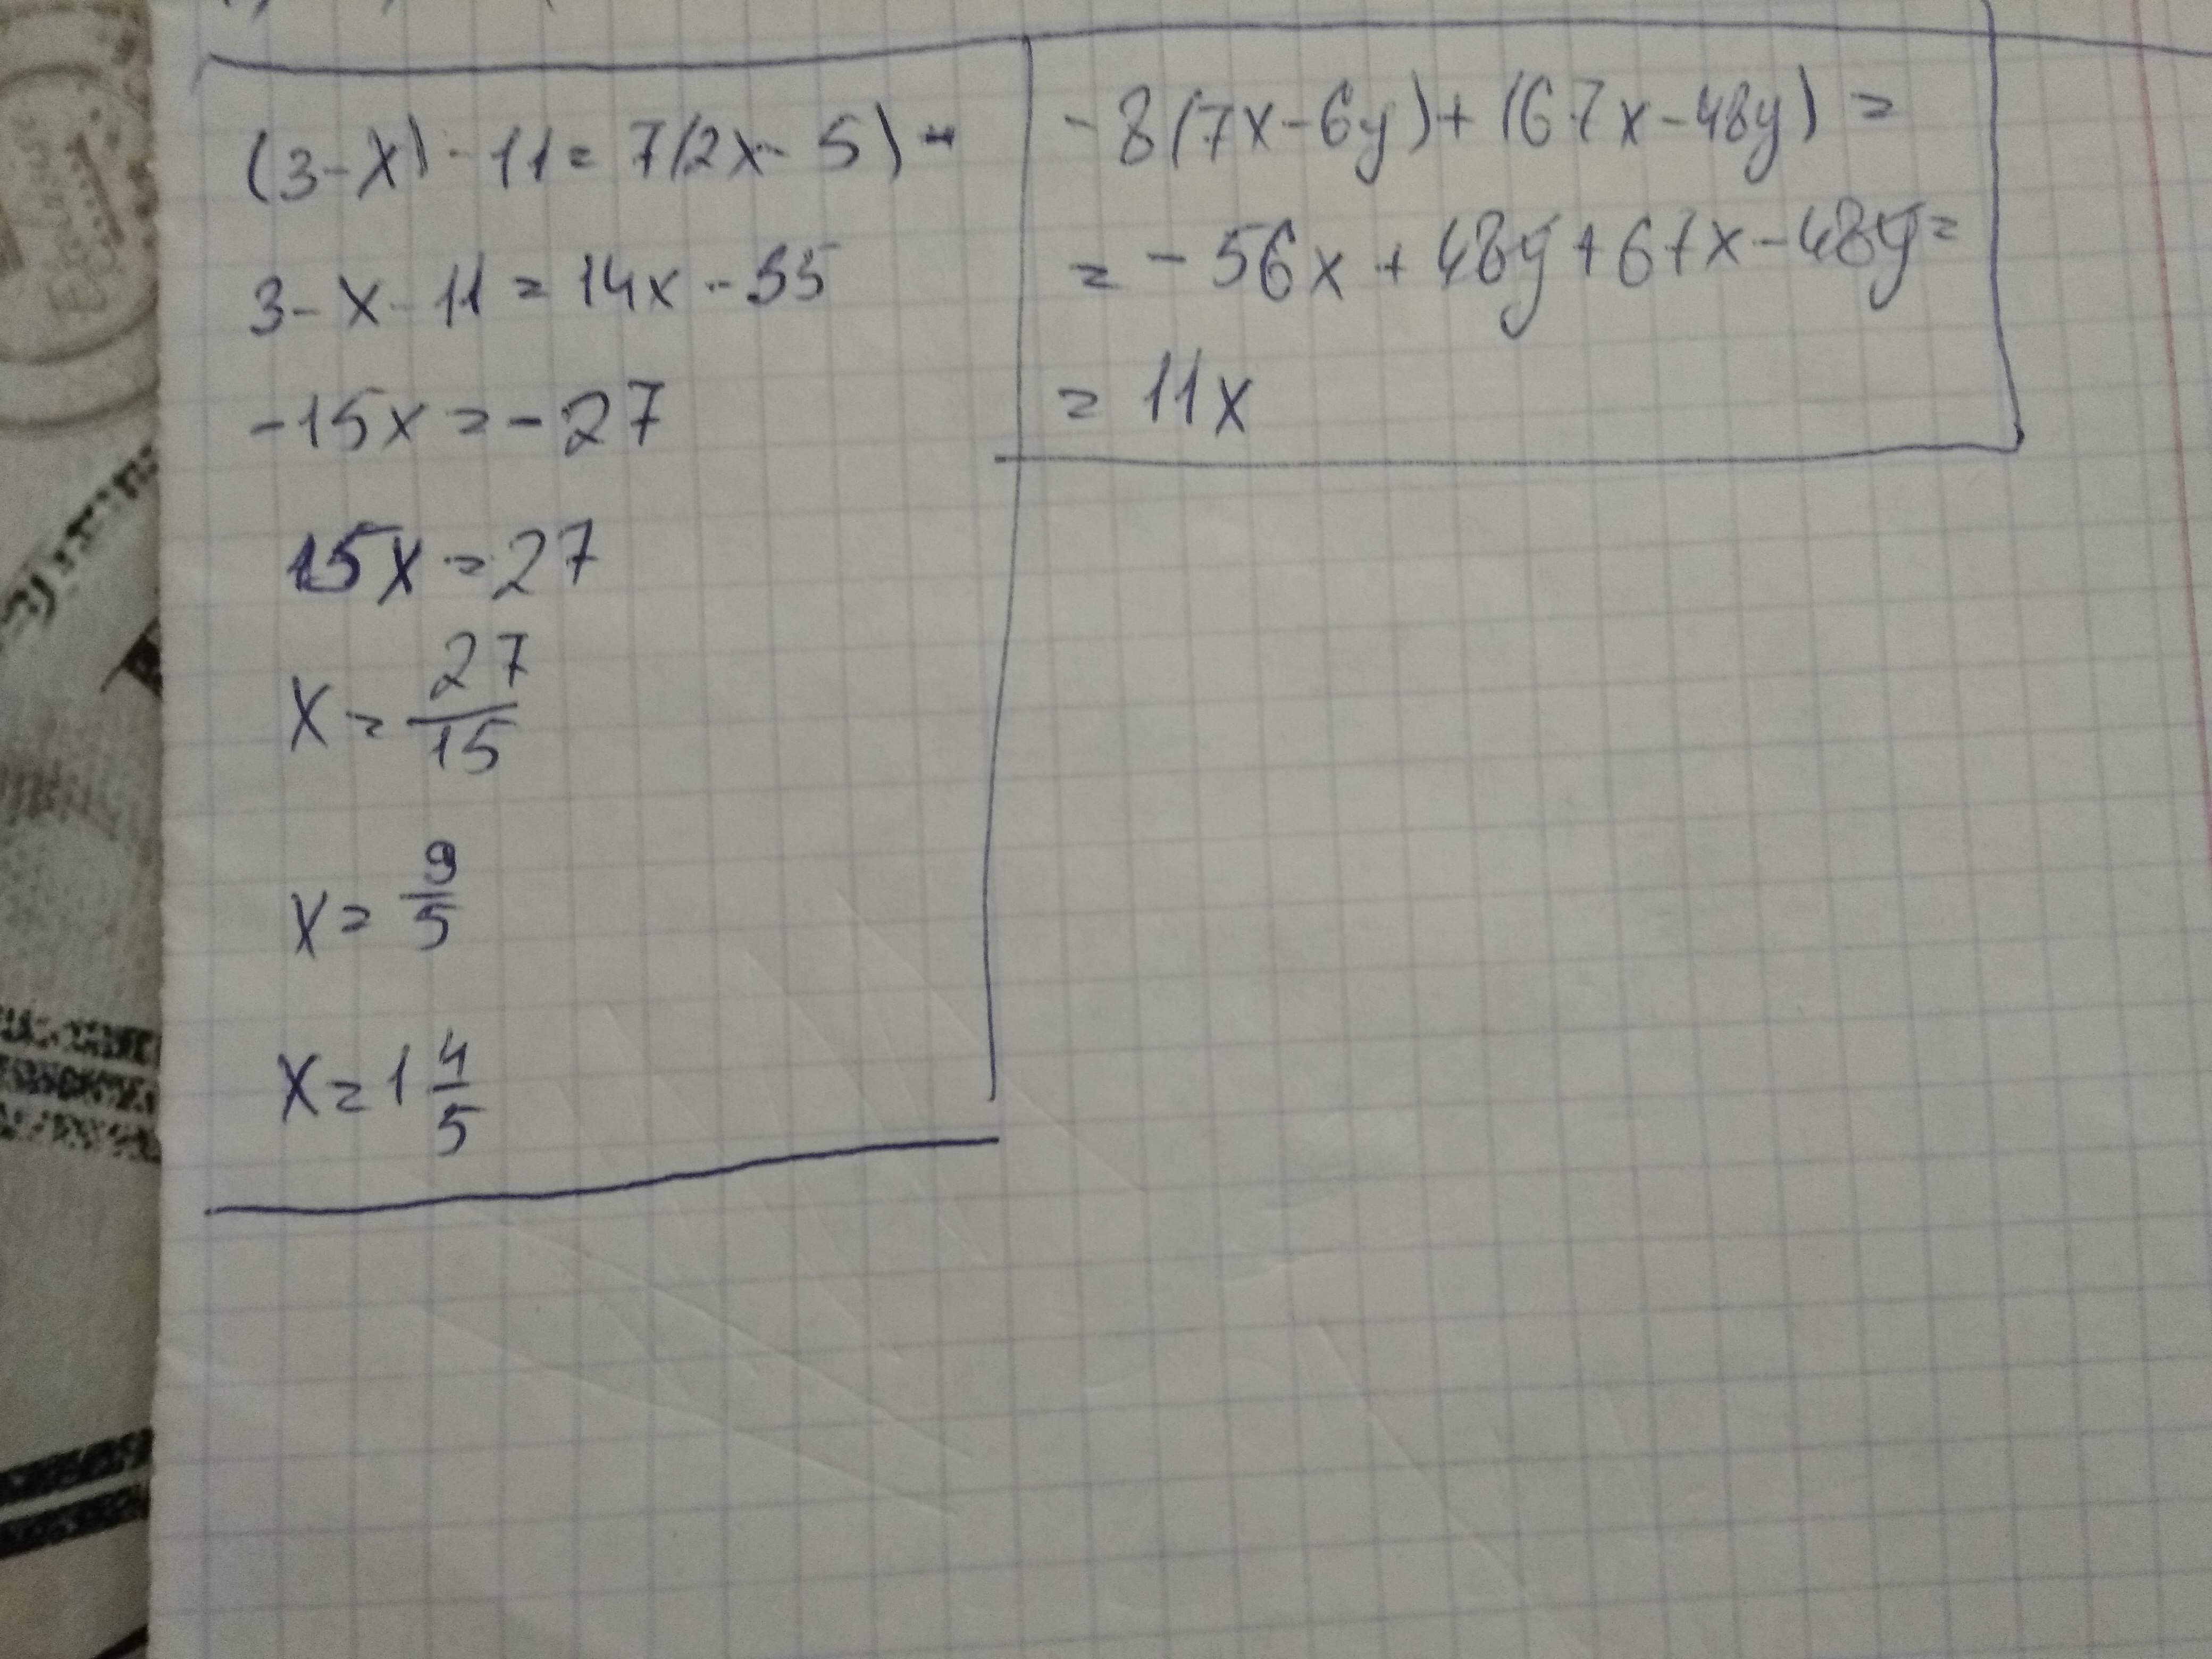 (3-x)-11=7(2x-5)-
3-x-11=14x-35
-15x=-27
15x=27
x=27/15
x=9/5
x=1 4/5
-8(7x-6y)+(67x-48y)=
=-56x+48y+67x-48y=
=11x